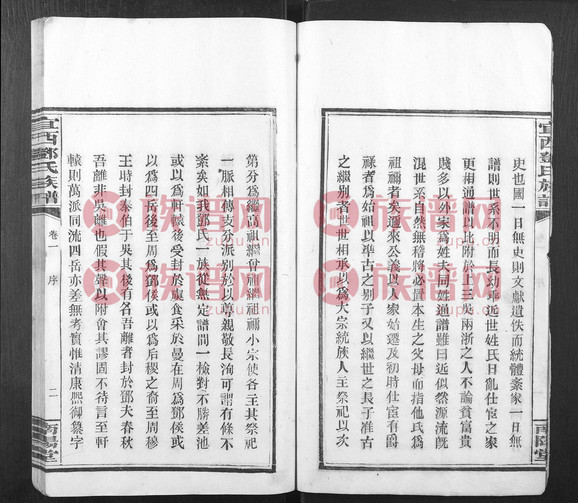 史也國一日無史則文獻遺佚而統體紊家一日無
譜則世系不明而長幼乖近世姓氏日亂仕宦之家
更相通譜以比附於上三吳兩浙之人不論貧富貴
賤多以外家爲姓夫同姓通譜雖曰近似然源流旣
混世系自然無稽將必置本生之父母而指他氏爲
祖禰者矣邇來公義以人家始遷及初時仕宦有爵
祿者爲始祖以準古之別子又以繼世之長子准古
之繼別者世世相承以爲大宗統族人主祭祀以次
第分爲繼高祖繼曾祖繼祖繼禰小宗使各主其祭祀
一脈相傳支分派別於以尊親敬長洵可謂有條不
紊矣如我鄧氏一族從無定譜間一檢對不勝差池
或以爲軒轅後受封於 食采於曼在周爲鄧侯或
以爲四岳後至周爲鄧侯或以爲后稷之裔至周穆
王時封泰伯于吳其後有名吾離者封於鄧夫春秋
吾離非吳離也假其離以附會其謬固不待言至軒
轅則萬派同流四岳亦差無考實惟清康熙御纂字
宜西鄧氏族譜
卷一
序
二
南陽堂
宜西鄧氏族譜
南陽堂
族谱网
zupu.com